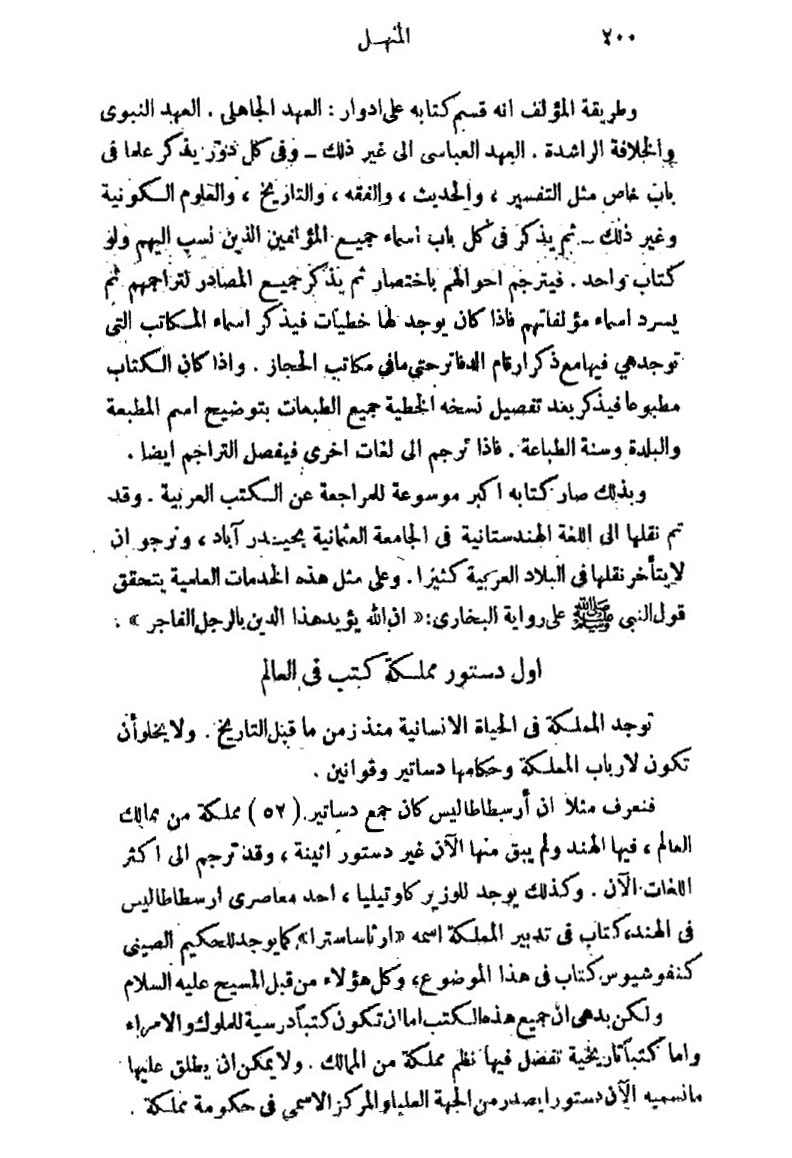 ٢٠٠ المنهل
وطريقة المؤلف انه قسم كتابه على ادوار : العهد الجاهلي . العهد النبوى
والخلافة الراشدة . العهد العباسى الى غير ذلك ــ وفى كل دور يذكر علما فى
باب خاص مثل التفسير ، والحديث ، والفقه ، والتاريخ ، والعلوم الكونية
وغير ذلك ــ ثم يذكر فى كل باب أسماء جميع المؤلفين الذين نسب اليهم ولو
كتاب واحد . فيترجم احوالهم باختصار ثم يذكر جميع المصادر لتراجمهم ثم
يسرد اسماء مؤلفاتهم فاذا كان يوجد لها خطيات فيذكر اسماء المكاتب التى
توجد هي فيها مع ذكر ارقام الدفاتر حتي ما في مكاتب الحجاز . واذا كان الكتاب
مطبوعا فيذكر بعد تفصيل نسخه الخطية جميع الطبعات بتوضيح اسم المطبعة
والبلدة وسنة الطباعة . فاذا ترجم الى لغات اخرى فيفصل التراجم ايضا .
وبذلك صار كتابه اكبر موسوعة للمراجعة عن الكتب العربية . وقد
تم نقلها الى اللغة الهندستانية فى الجامعة العثمانية بحيدر آباد ، ونرجو ان
لا يتأخر نقلها فى البلاد العربية كثيرا . وعلى مثل هذه الخدمات العلمية يتحقق
قول النبى ﷺ على رواية البخارى : « ان الله يؤيد هذا الدين بالرجل الفاجر » .
اول دستور مملكة كتب فى العالم
توجد المملكة فى الحياة الانسانية منذ زمن ما قبل التاريخ . ولا يخلو أن
تكون لارباب المملكة وحكامها دساتير وقوانين .
فنعرف مثلا ان أرسطاطاليس كان جمع دساتير ( ٥٢ ) مملكة من ممالك
العالم ، فيها الهند ولم يبق منها الآن غير دستور اثينة ، وقد ترجم الى اكثر
اللغات الآن . وكذلك يوجد للوزير كاوتيليا ، احد معاصرى ارسطاطاليس
فى الهند، كتاب فى تدبير المملكة اسمه «ارثاساسترا» كما يوجد للحكيم الصينى
كنفوشيوس كتاب فى هذا الموضوع، وكل هؤلاء من قبل المسيح عليه السلام
ولكن بدهى ان جميع هذه الكتب اما ان تكون كتباً درسية للملوك والامراء
واما كتباً تاريخية تفضل فيها نظم مملكة من الممالك . ولا يمكن ان يطلق عليها
ما نسميه الآن دستورا يصدر من الجهة العليا والمركز الاسمي فى حكومة مملكة .